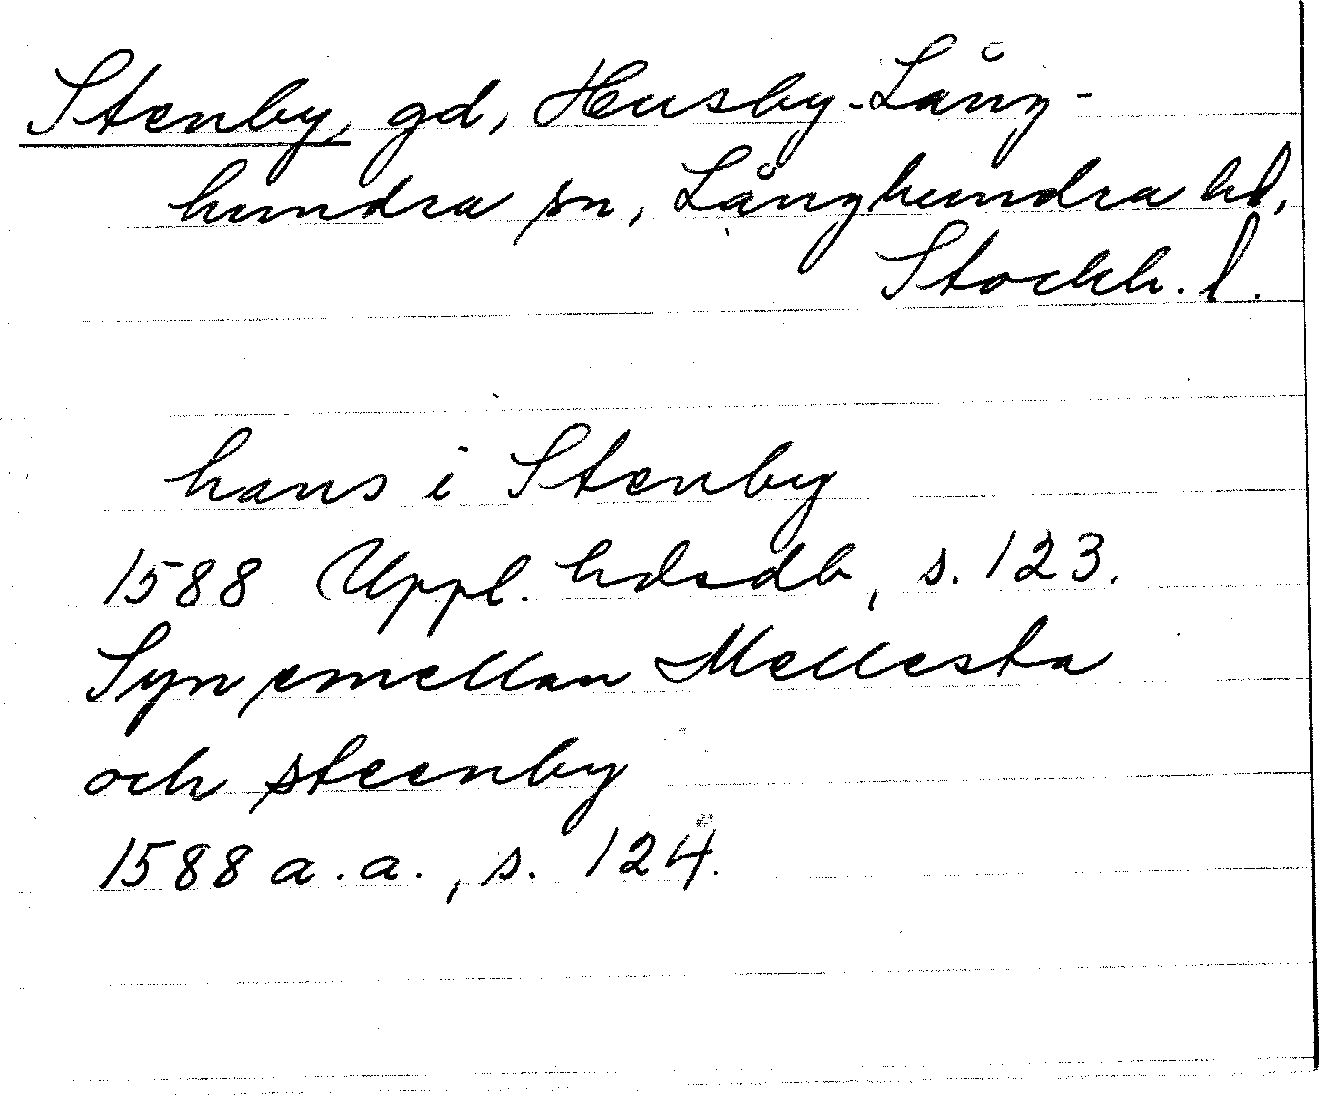 Stenby, gd, Husby-Lång-
hundra sn, Långhundra hd,
Stockh. l.
hans i Stenby
1588 Uppl. hdsdb, s. 123.
Syn emellan Mellesta
och steenby
1588 a.a., s. 124.